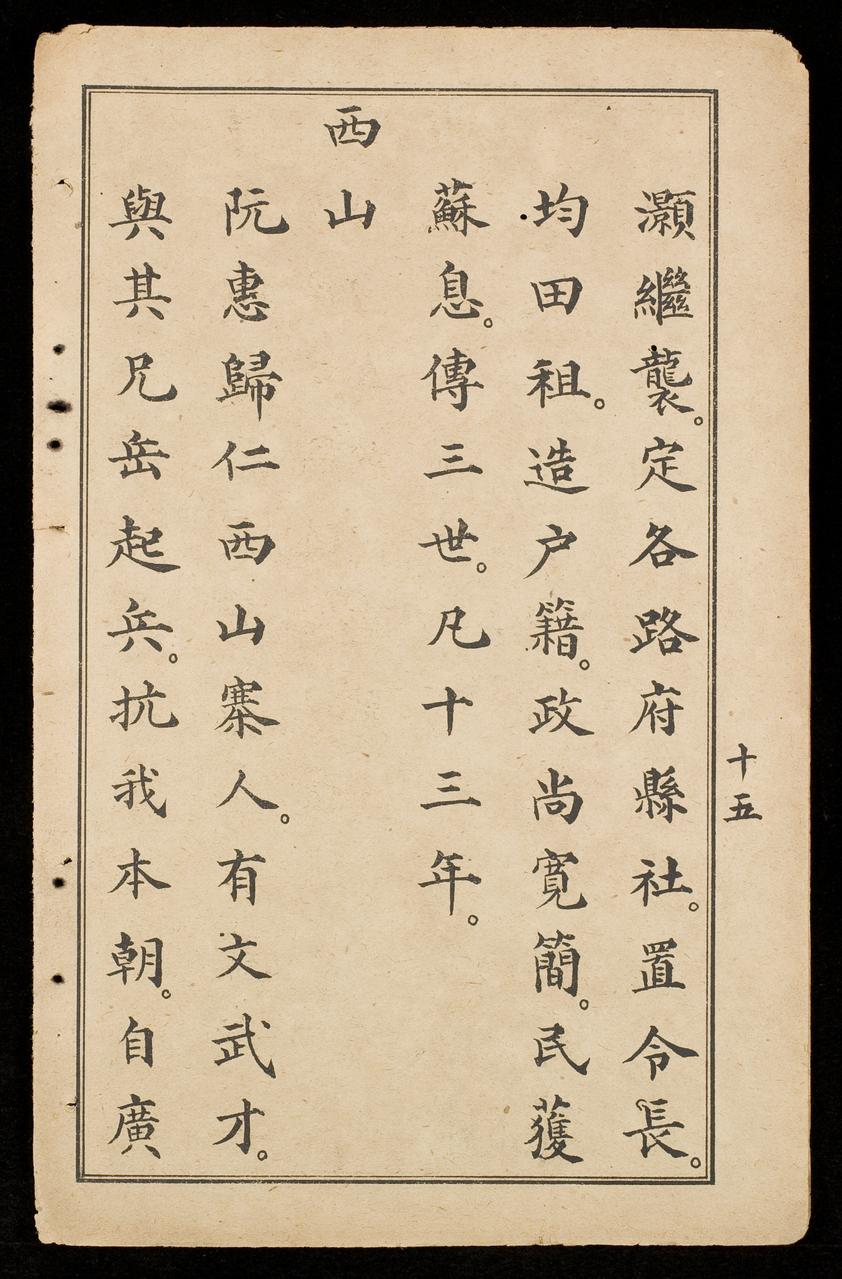 灝繼襲。定各路府縣社。置令長。
均田祖。造户籍。政尚寬簡。民獲
蘇息。傳三世。凡十三年。
西山
阮惠歸仁西山寨人。有文武才。
與其兄岳起兵。抗我本朝。自廣
十五